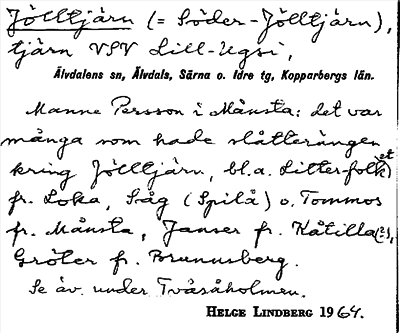 Jölltjärn (= Söder-Jölltjärn),
tjärn VSV Lill-Ugsi,
Älvdalens sn, Älvdals, Särna o. Idre tg, Kopparbergs län.
Manne Persson i Månsta: det var
många som hade slåtterängen
kring Jölltjärn, bl.a. Litter-folket
fr. Loka, Såg (Spilå) o. Tommos
fr. Månsta, Janser fr. Kåtilla (2 s),
Gröter fr. Brunnsberg.
Se äv. under Tvåsåholmen.
HELGE LINDBERG 1964.